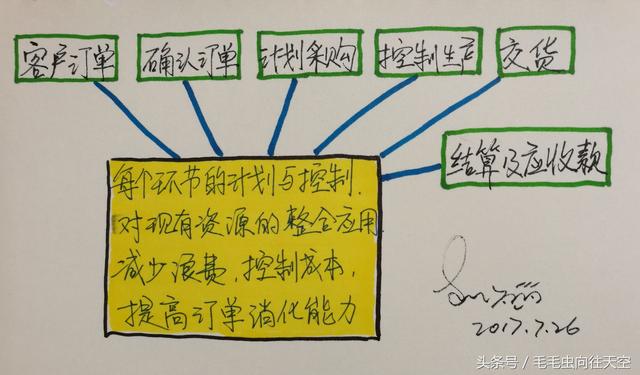 客户订单
确认订单
计划采购
控制生产
交货
结算及应收款
每个环节的计划与控制.
对现有资源的整合应用.
减少浪费.控制成本,
提高订单消化能力
2017.7.26
头条号 / 毛毛虫向往天空